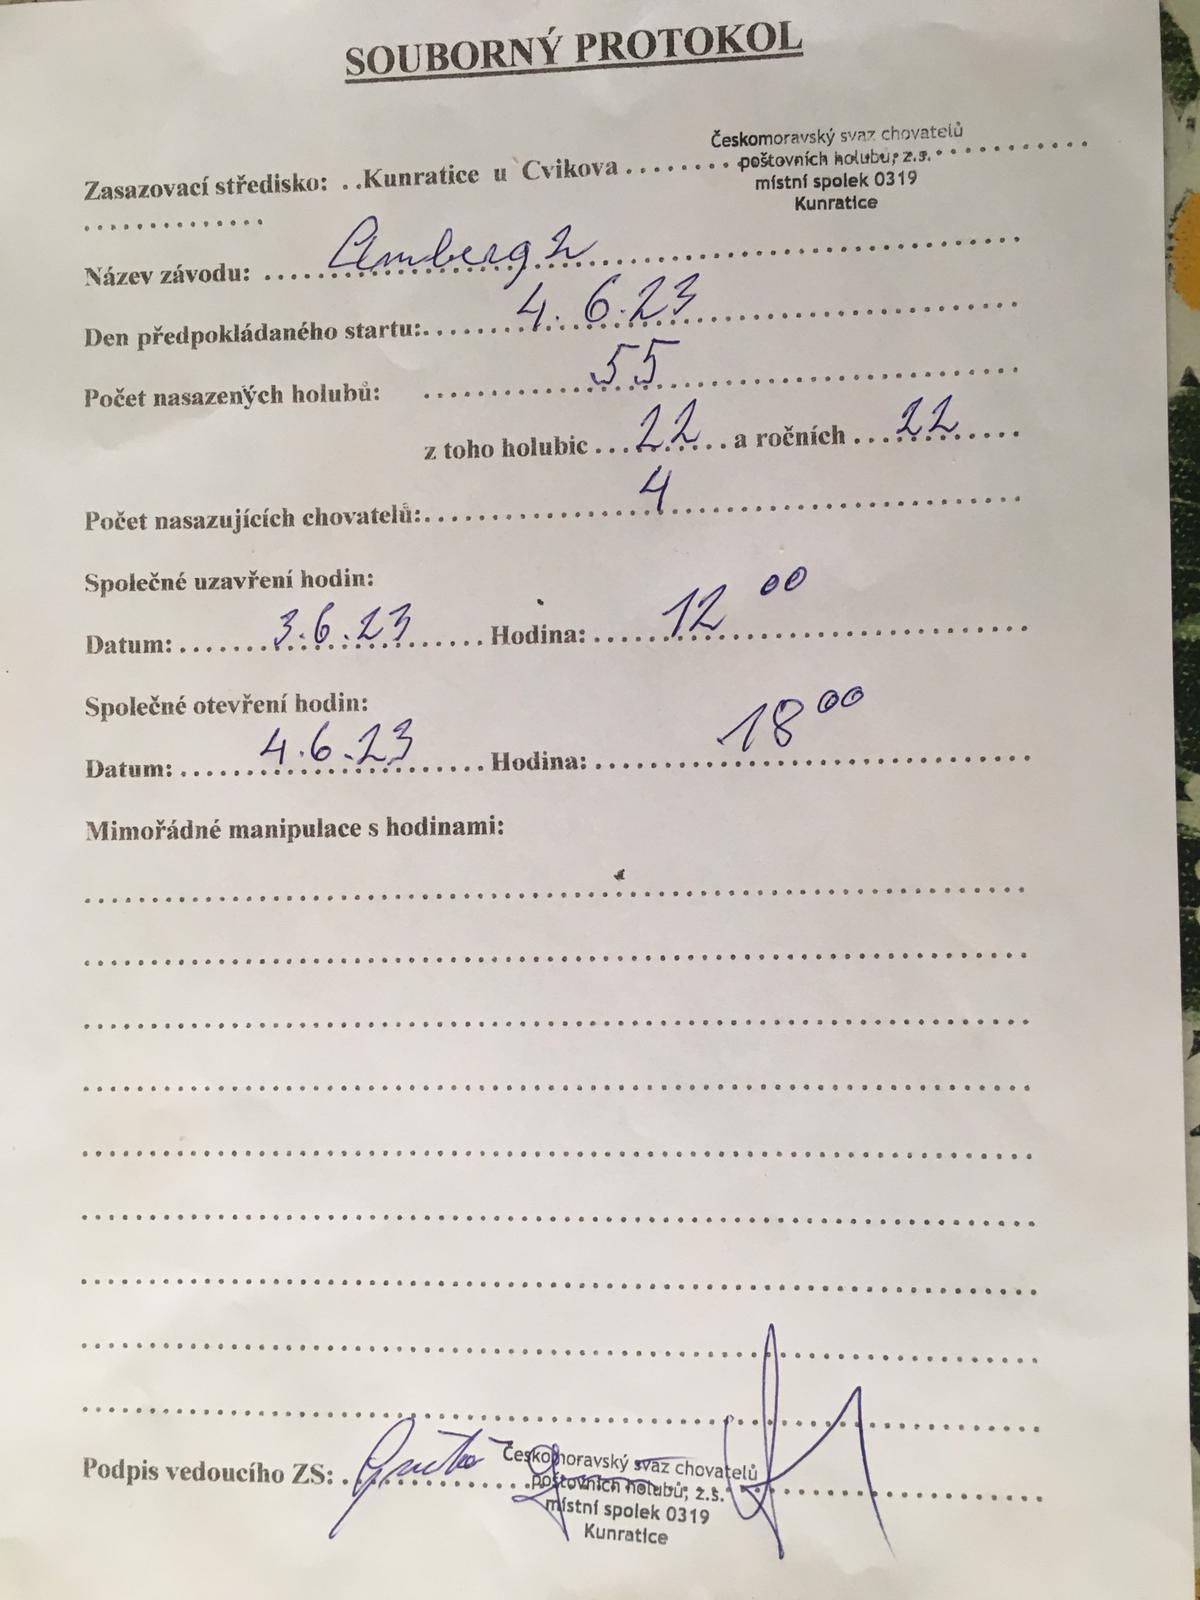 SOUBORNÝ PROTOKOL
Českomoravský svaz chovatelů
poštovních holubů, z.s.
místní spolek 0319
Kunratice
Zasazovací středisko: ..Kunratice u Cvikova
Název závodu: Amberg 2
Den předpokládaného startu: 4.6.23
Počet nasazených holubů: 55
z toho holubic 22 a ročních 22
Počet nasazujících chovatelů: 4
Společné uzavření hodin:
Datum: 3.6.23 Hodina: 12 00
Společné otevření hodin:
Datum: 4.6.23 Hodina: 18 00
Mimořádné manipulace s hodinami:
Podpis vedoucího ZS:
Českomoravský svaz chovatelů
poštovních holubů, z.s.
místní spolek 0319
Kunratice